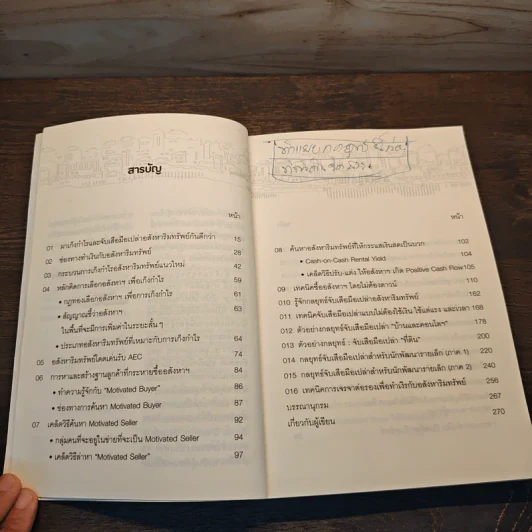 สารบัญ
หน้า
01 มาเก็งกำไรและจับเสือมือเปล่าอสังหาริมทรัพย์กันดีกว่า 15
02 ช่องทางทำเงินกับอสังหาริมทรัพย์ 26
03 กระบวนการเก็งกำไรอสังหาริมทรัพย์แนวใหม่ 42
04 หลักคิดการเลือกอสังหาฯ เพื่อเก็งกำไร 59
• กฎทองเลือกอสังหาฯ เพื่อการเก็งกำไร 61
• สัญญาณชี้ว่าอสังหาฯ 63
ในพื้นที่จะมีการเพิ่มค่าในระยะสั้นๆ
• ประเภทอสังหาริมทรัพย์ที่เหมาะกับการเก็งกำไร 64
05 อสังหาริมทรัพย์โดดเด่นรับ AEC 74
06 การหาและสร้างฐานลูกค้าที่กระหายซื้ออสังหาฯ 84
• ทำความรู้จักกับ "Motivated Buyer" 86
• ช่องทางการค้นหา Motivated Buyer 87
07 เคล็ดวิธีค้นหา Motivated Seller 92
• กลุ่มคนที่จะอยู่ในข่ายที่จะเป็น Motivated Seller 94
• เคล็ดวิธีล่าหา "Motivated Seller" 97
หน้า
08 ค้นหาอสังหาริมทรัพย์ที่ให้กระแสเงินสดเป็นบวก 102
• Cash-on-Cash Rental Yield 104
• เคล็ดวิธีปรับ-แต่ง ให้อสังหาฯ เกิด Positive Cash Flow 105
09 เทคนิคซื้ออสังหาฯ โดยไม่ต้องดาวน์ 110
010 รู้จักกลยุทธ์จับเสือมือเปล่าอสังหาริมทรัพย์ 162
011 เทคนิคจับเสือมือเปล่าแบบไม่ต้องใช้เงิน ใช้แต่แรง และเวลา 168
012 ตัวอย่างกลยุทธ์จับเสือมือเปล่า "บ้านและคอนโดฯ" 178
013 ตัวอย่างกลยุทธ์ : จับเสือมือเปล่า "ที่ดิน" 200
014 กลยุทธ์จับเสือมือเปล่าสำหรับนักพัฒนารายเล็ก (ภาค 1) 220
015 กลยุทธ์จับเสือมือเปล่าสำหรับนักพัฒนารายเล็ก (ภาค 2) 240
016 เทคนิคการเจรจาต่อรองเพื่อทำเงินกับอสังหาริมทรัพย์ 256
บรรณานุกรม 267
เกี่ยวกับผู้เขียน 270